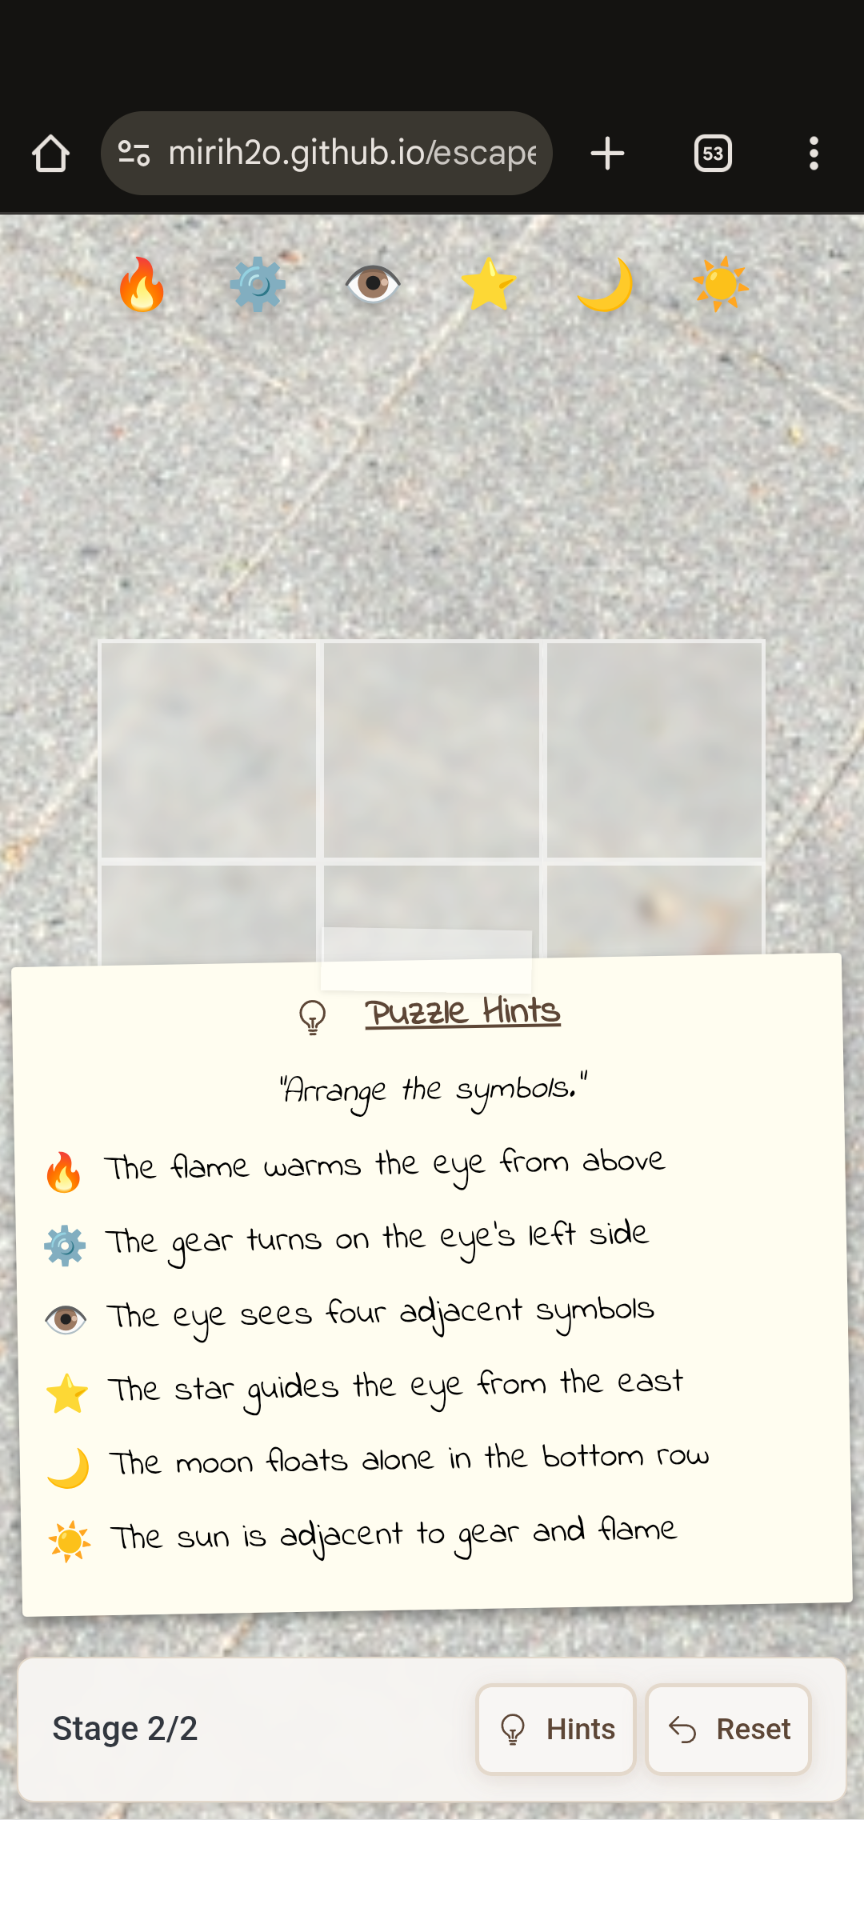 mirih2o.github.io/escape
53
Puzzle Hints
"Arrange the symbols."
The flame warms the eye from above
The gear turns on the eye's left side
The eye sees four adjacent symbols
The star guides the eye from the east
The moon floats alone in the bottom row
The sun is adjacent to gear and flame
Stage 2/2
Hints
Reset